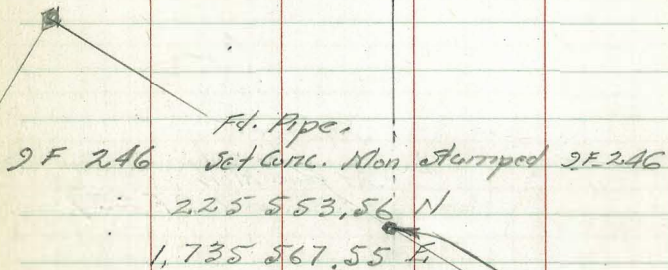 Fd. Pipe.
9F 246 Set Conc. Mon Stamped 9F-246
225 553.56 N
1,735 567.55 E